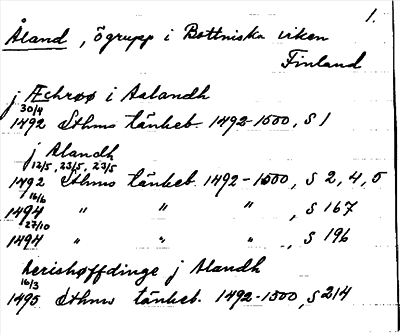 1.
Åland, ögrupp i Bottniska viken
Finland
j Æchrøø i Aalandh
30/4
1492 Sthms tänkeb. 1492-1500, s 1
j Alandh
12/5, 23/5, 23/5
1492 Sthms tänkeb. 1492-1500, s 2, 4, 5
16/6
1494 " " " , s 167
27/10
1494 " " " , s 196
herishøffdinge j Alandh
16/3
1495 Sthms tänkeb. 1492-1500, s 214